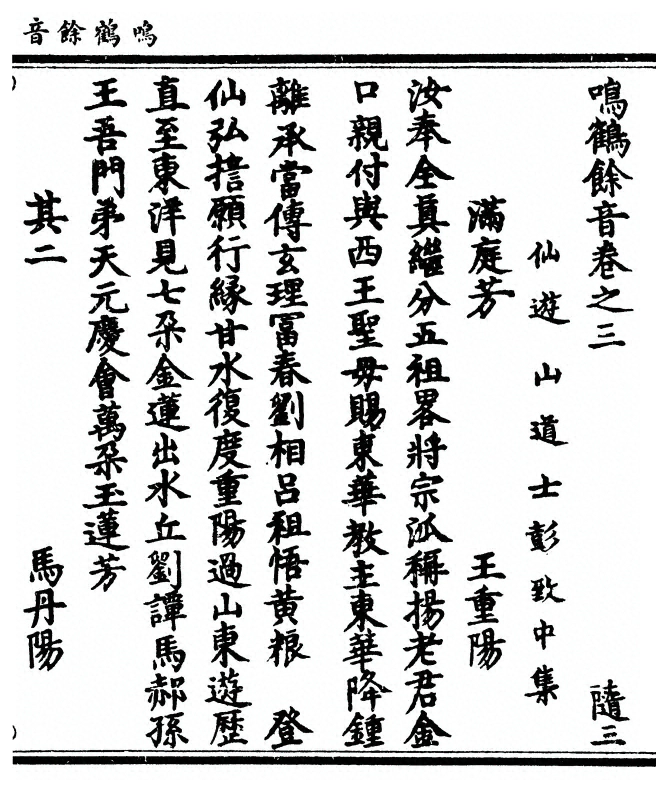 鳴鶴餘音
鳴鶴餘音卷之三　隨三
仙遊山道士彭致中集
滿庭芳　王重陽
汝奉全真繼分五祖畧將宗派稱揚老君金
口親付與西王聖母賜東華教主東華降鍾
離承當傳玄理富春劉相呂祖悟黃粮　登
仙弘誓願行緣甘水復度重陽過山東遊歷
直至東洋見七朶金蓮出水丘劉譚馬郝孫
王吾門弟天元慶會萬朶玉蓮芳
其二　馬丹陽